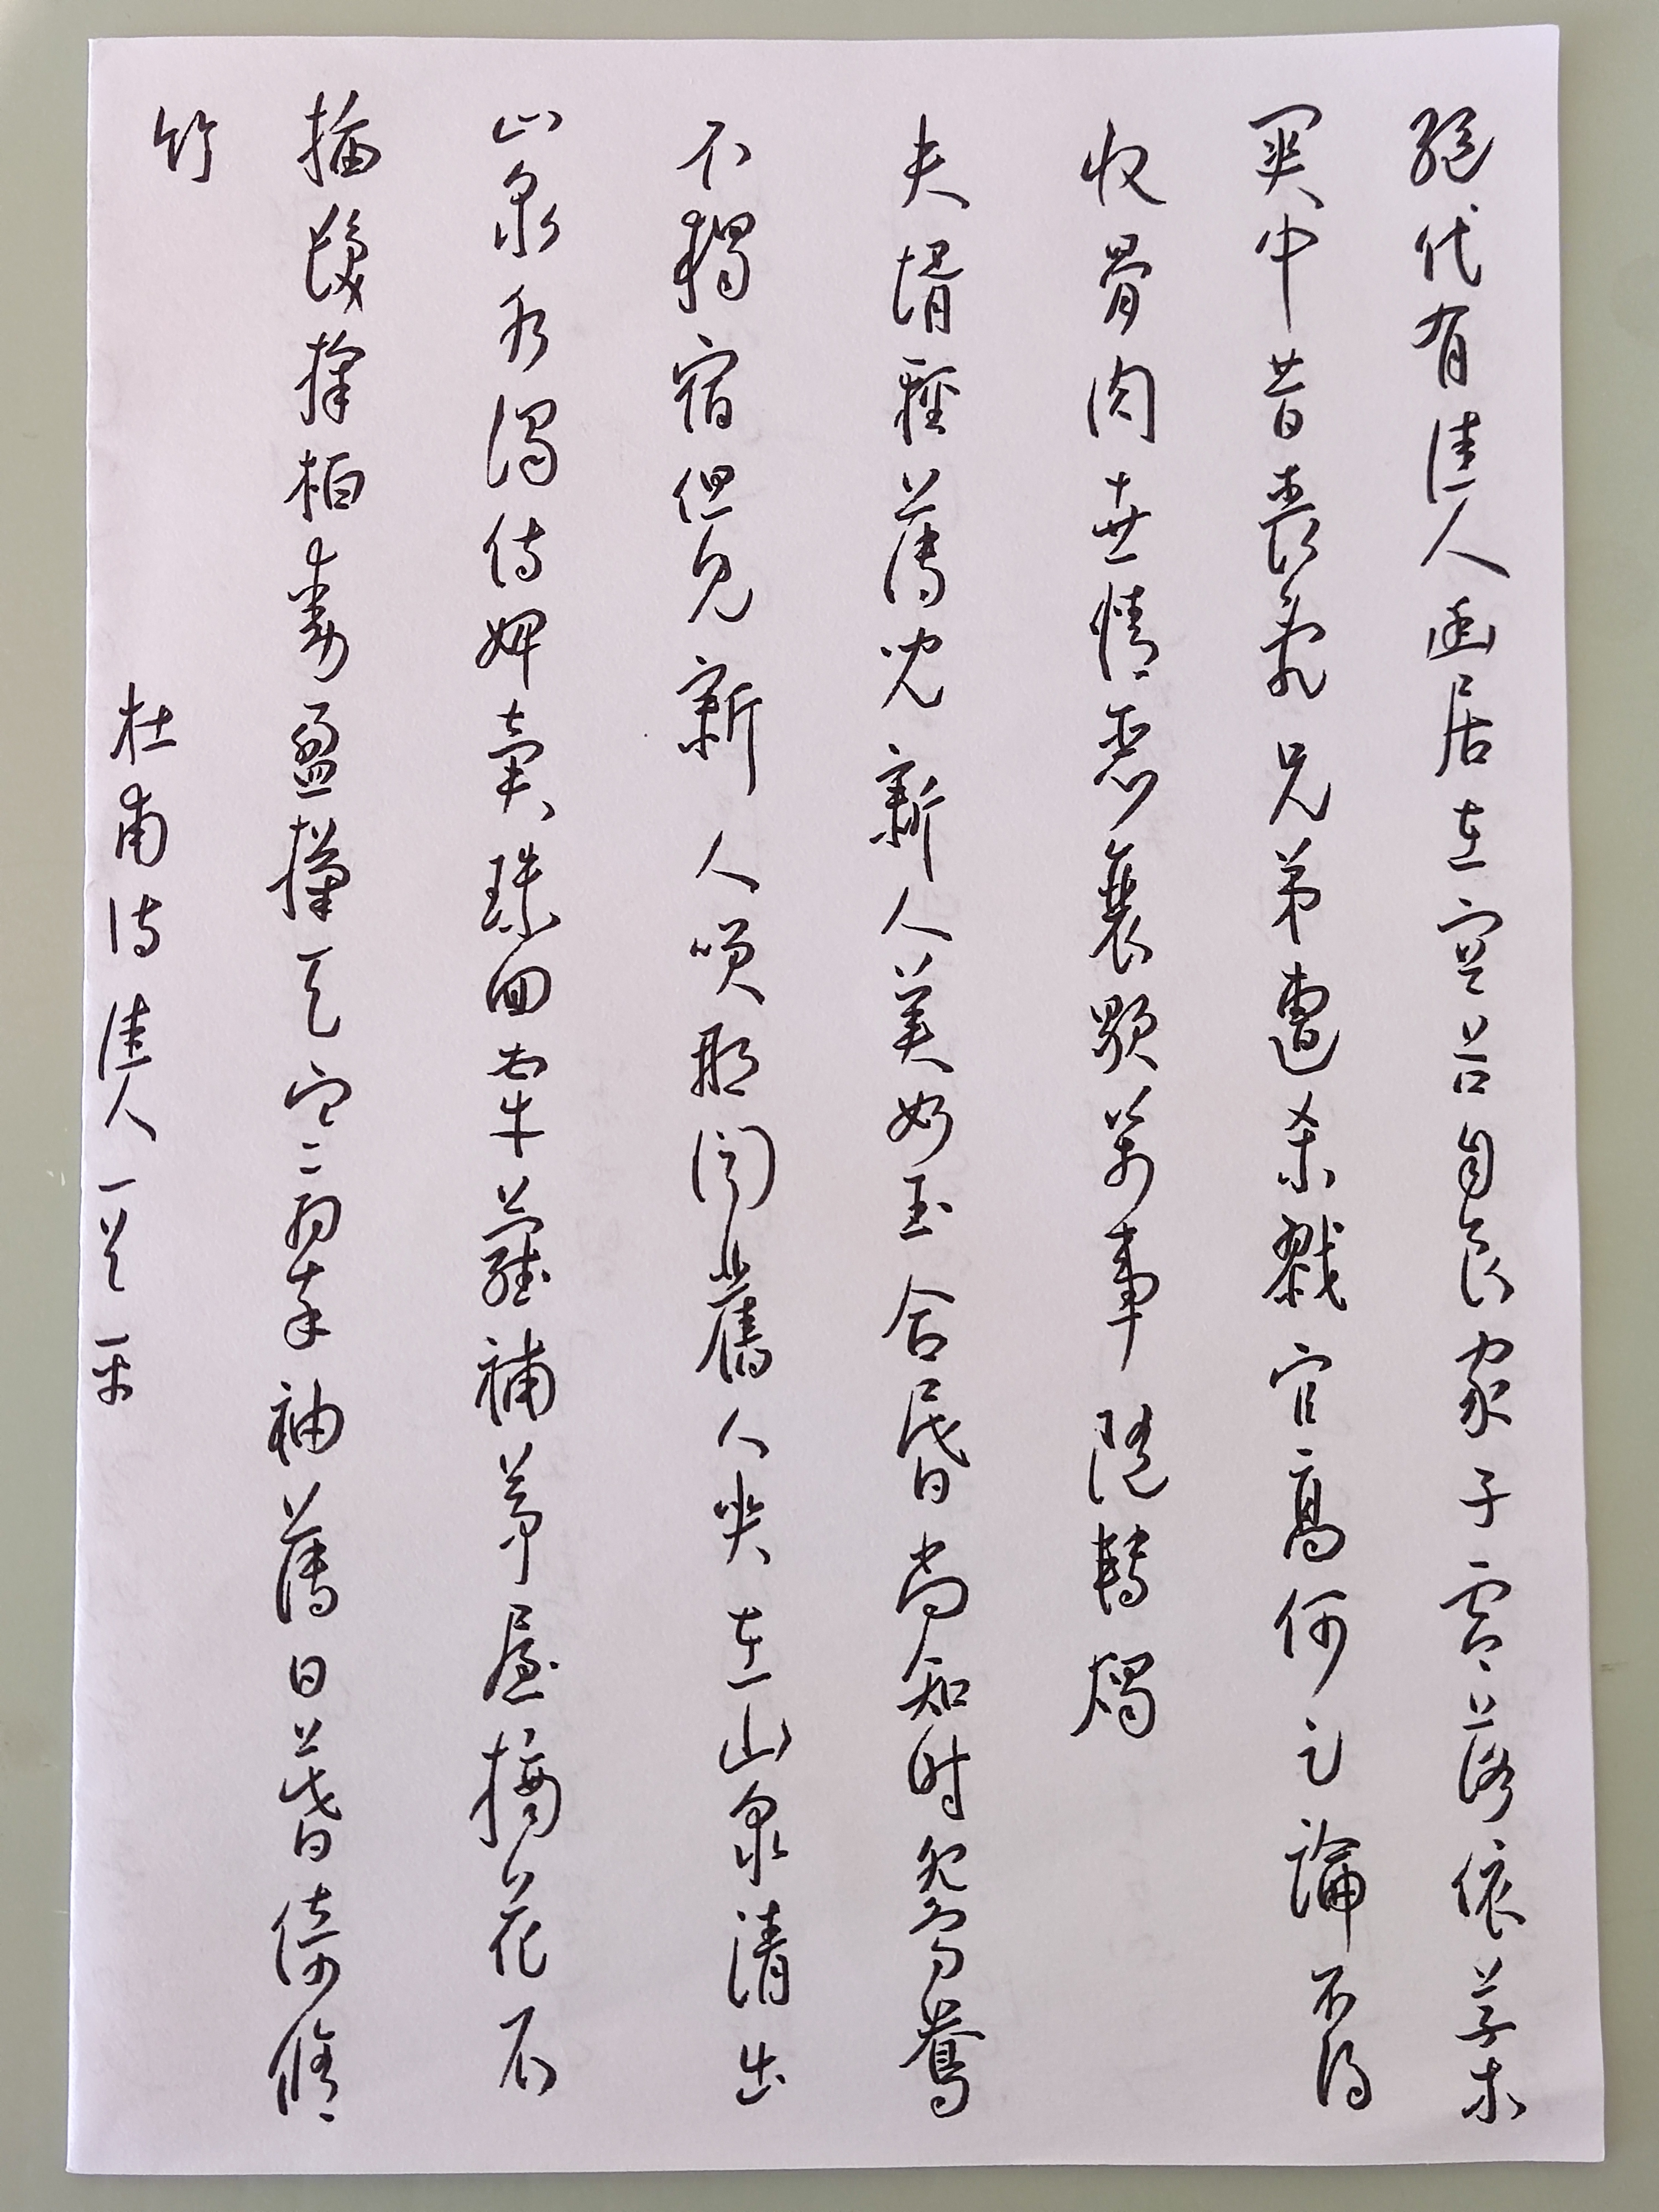 絕代有佳人幽居在空谷自良家子零落依草木
關中昔喪亂兄弟遭殺戮官高何足論不得
收骨肉世情惡衰歇萬事隨轉燭
夫婿輕薄兒新人美如玉合昏尚知時鴛鴦
不獨宿但見新人笑那聞舊人哭在山泉清出
山泉水濁侍婢賣珠回牽蘿補茅屋摘花不
插髮採柏動盈掬天寒翠袖薄日暮倚修
竹
杜甫詩佳人一首